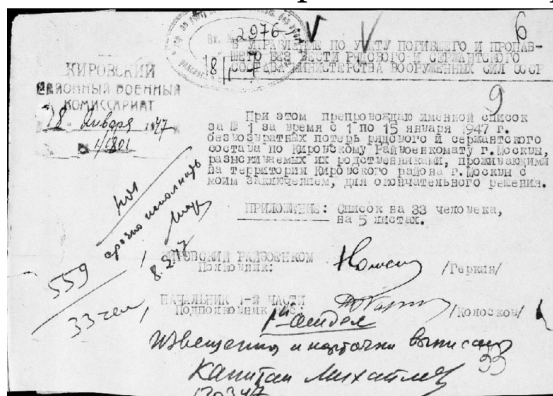 6
2976
В УПРАВЛЕНИЕ ПО УЧЕТУ ПОГИБШЕГО И ПРОПАВ-
ШЕГО БЕЗ ВЕСТИ РЯДОВОГО И СЕРЖАНТСКОГО
СОСТАВА МИНИСТЕРСТВА ВООРУЖЕННЫХ СИЛ СССР
КИРОВСКИЙ
РАЙОННЫЙ ВОЕННЫЙ
КОМИССАРИАТ
28 января 1947
9
При этом препровождаю именной список
за № 1 за время с 1 по 15 января 1947 г.
безвозвратных потерь рядового и сержантского
состава по Кировскому Райвоенкомату г. Москвы,
разыскиваемых их родственниками, проживающими
на территории Кировского района г. Москвы с
моим заключением, для окончательного решения.
ПРИЛОЖЕНИЕ: Список на 33 человека,
на 5 листах.
срочно исполнить
8.2.47
559
33 чел
КИРОВСКИЙ РАЙВОЕНКОМ
Полковник: /Геркин/
НАЧАЛЬНИК 1-й ЧАСТИ
Подполковник /Колосков/
1й отдел
Извещения и карточки выписаны
33
Капитан Михайлов